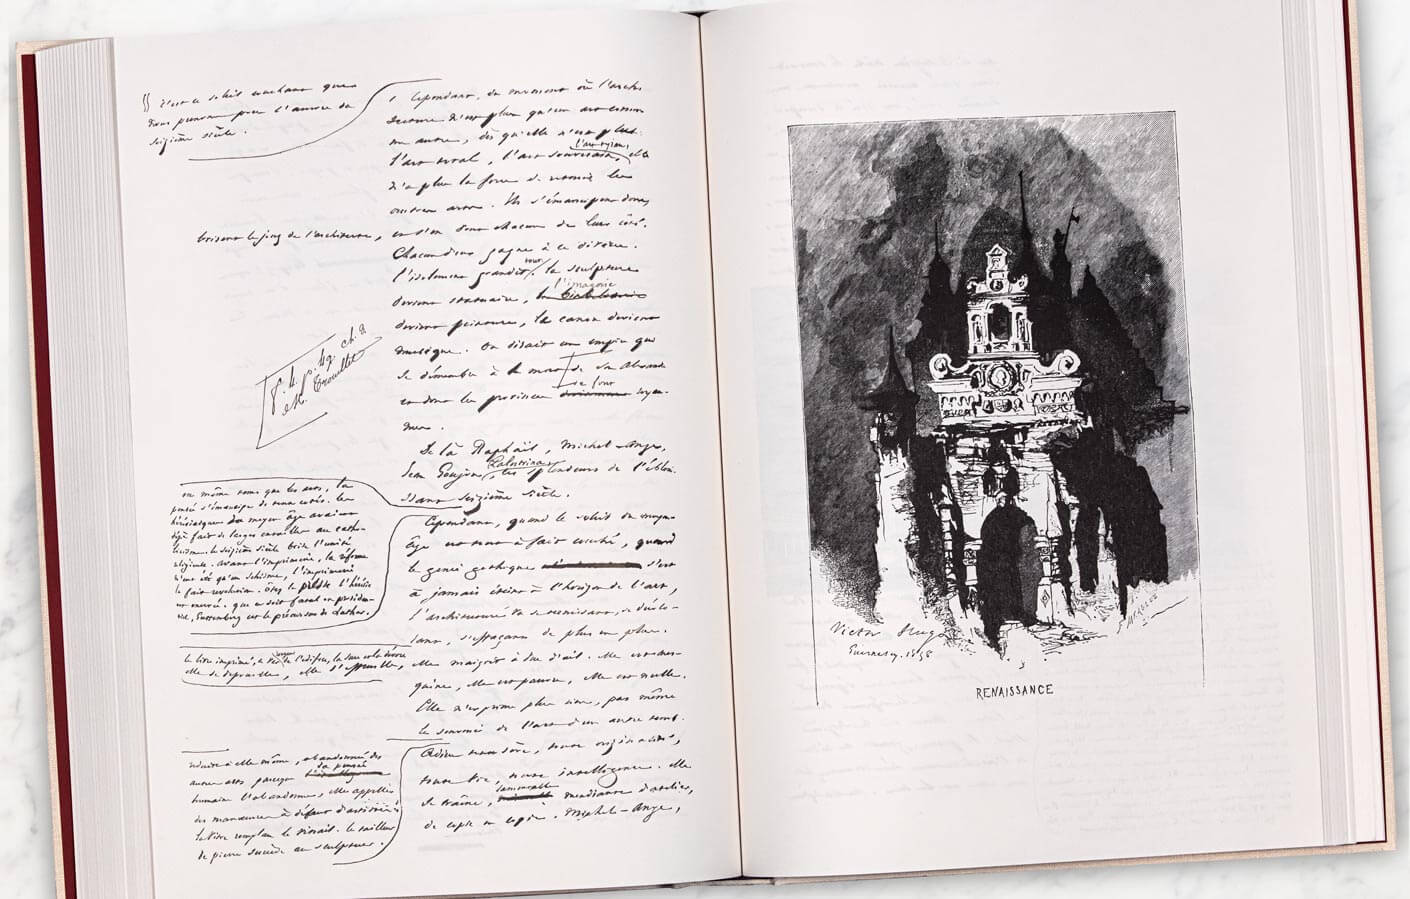 c'est ce soleil couchant que
nous prenons pour l'aurore du
seizième siècle.
Cependant, du moment où l'archi
tecture n'est plus qu'un art comme
un autre, dès qu'elle n'est plus
l'art tyran,
l'art total, l'art souverain, elle
n'a plus la force de retenir les
autres arts. Ils s'émancipent donc,
brisent le joug de l'architecte,
et s'en vont chacun de leur côté.
Chacun d'eux gagne à ce divorce.
tout
l'isolement grandit. la sculpture
l'imagerie
devient statuaire,
devient peinture, le canon devient
musique. On dirait un empire qui
se démembre à la mort de son Alexandre
se font
et dont les provinces royau-
mes.
8. 4. p. 49 ch. 2
De là Raphaël, Michel-Ange,
Palestrina
Jean Goujon, ces splendeurs de l'éblou-
issant seizième siècle.
en même temps que les arts, la
pensée s'émancipe de tous côtés. les
hérésiarques du moyen âge avaient
déjà fait de larges entailles au catho-
licisme. le seizième siècle brise l'unité
religieuse. avant l'imprimerie, la réforme
n'eût été qu'un schisme, l'imprimerie
la fait révolution. ôtez la presse, l'hérésie
est énervée. que ce soit fatal ou providen-
tiel, Gutenberg est le précurseur de Luther.
Cependant, quand le soleil du moyen-
âge est tout à fait couché, quand
le génie gothique s'est
à jamais éteint à l'horizon de l'art,
l'architecture va se ternissant, se déco-
lorant, s'effaçant de plus en plus.
le livre imprimé, ce ver rongeur de l'édifice, la suce et la dévore
elle se dépouille, elle s'effeuille,
elle maigrit à vue d'œil. Elle est mes-
quine, elle est pauvre, elle est nulle.
Elle n'exprime plus rien, pas même
le souvenir de l'art d'un autre temps.
réduite à elle-même, abandonnée des
autres arts parceque la pensée
humaine l'abandonne, elle appelle
des manœuvres à défaut d'artistes
la vitre remplace le vitrail. le tailleur
de pierre succède au sculpteur.
Adieu toute sève, toute originalité,
toute vie, toute intelligence. Elle
lamentable
se traîne, mendiante d'atelier,
de copie en copie. Michel-Ange,
Victor Hugo
Guernesey. 1858
RENAISSANCE